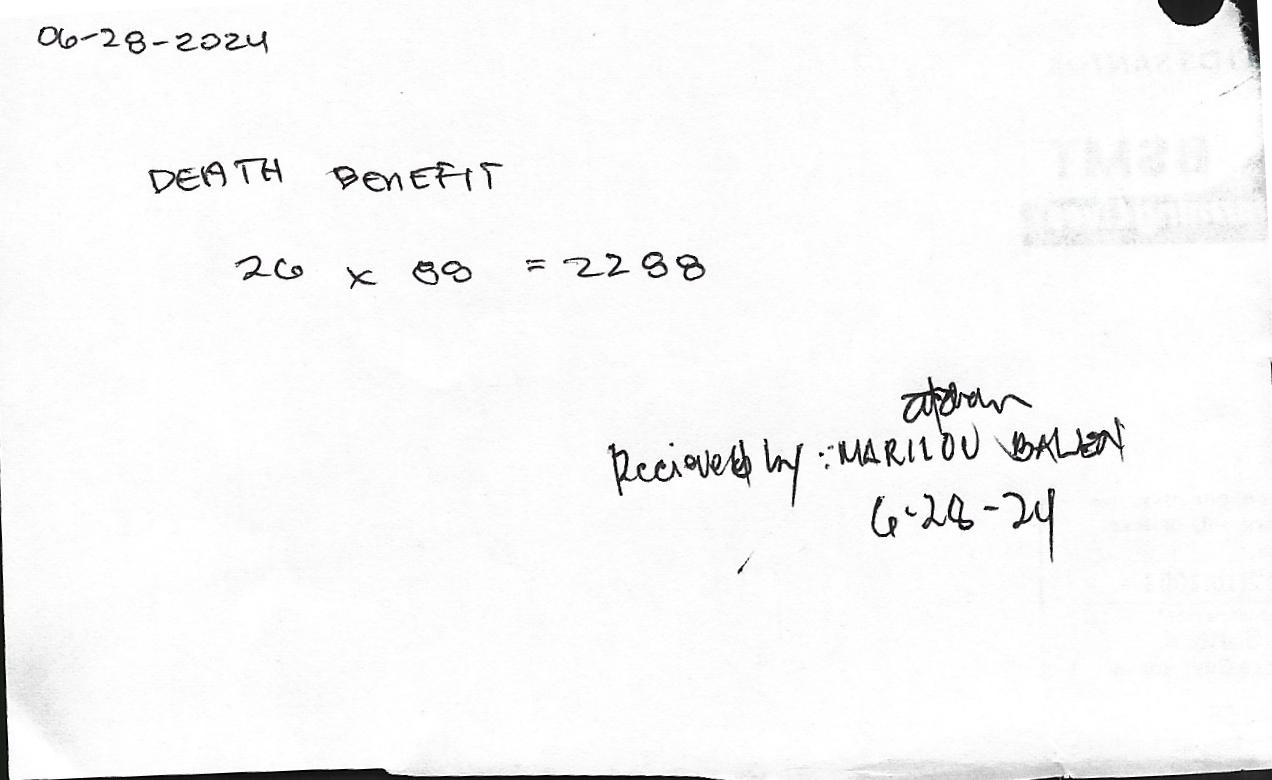 06-28-2024
DEATH BENEFIT
26 x 88 = 2288
Recieved by : MARILOU BALEN
6-28-24